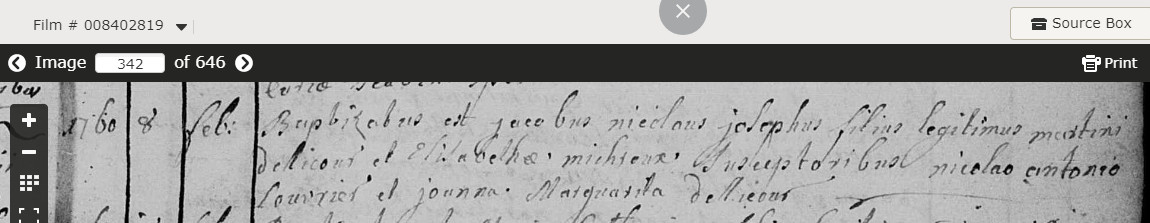 Film # 008402819
Source Box
Image 342 of 646
Print
1760 8 feb: Baptizatus est jacobus nicolaus josephus filius legitimus martini
dellicour et Elisabethæ michieux Susceptoribus nicolao antonio
Couvrier et joanna Marguarita dellicour